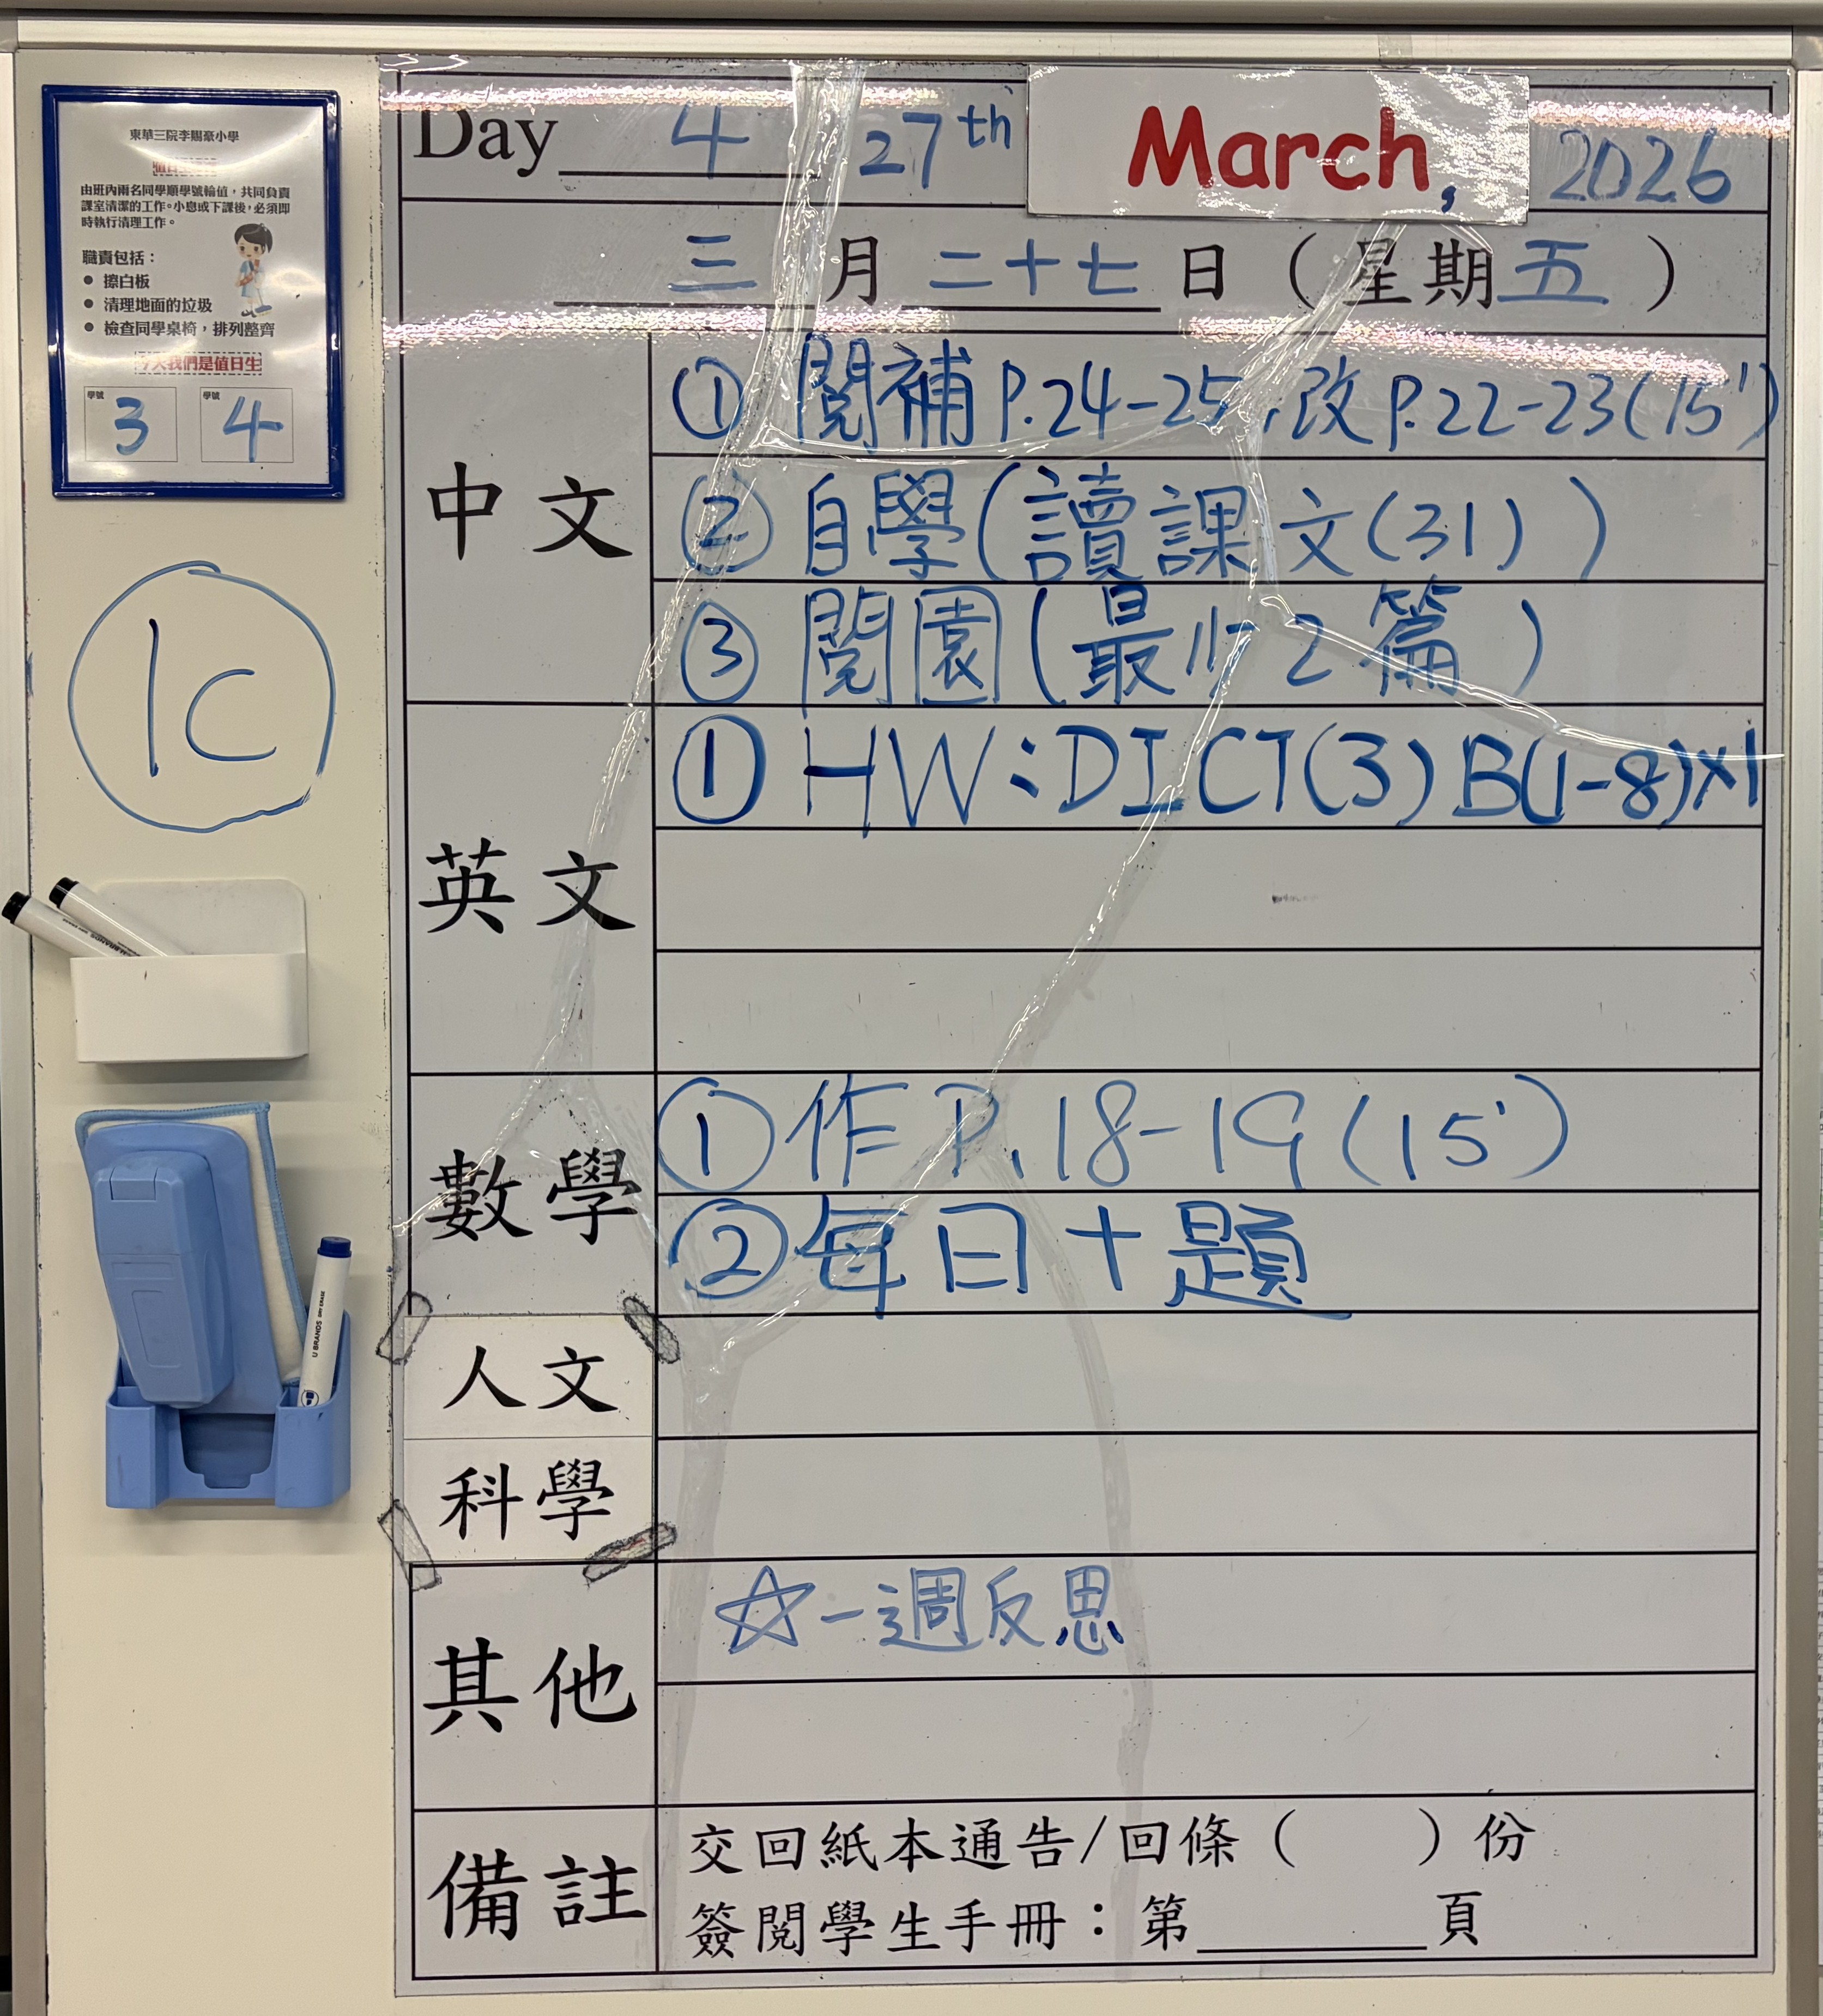 東華三院李賜豪小學
由班內兩名同學順學號輪值，共同負責
課室清潔的工作。小息或下課後，必須即
時執行清理工作。
職責包括：
● 擦白板
● 清理地面的垃圾
● 檢查同學桌椅，排列整齊
今天我們是值日生
學號 3 學號 4
1C
Day 4 27th March, 2026
三月二十七日（星期五）
中文
① 閱補 P.24-25, 改 P.22-23 (15')
② 自學(讀課文(31))
③ 閱園(最少2篇)
英文
① HW:DICT(3) B(1-8)x1
數學
① 作 P.18-19 (15')
② 每日十題
人文
科學
其他
☆一週反思
備註
交回紙本通告/回條（ ）份
簽閱學生手冊：第______頁
U BRANDS DRY ERASE